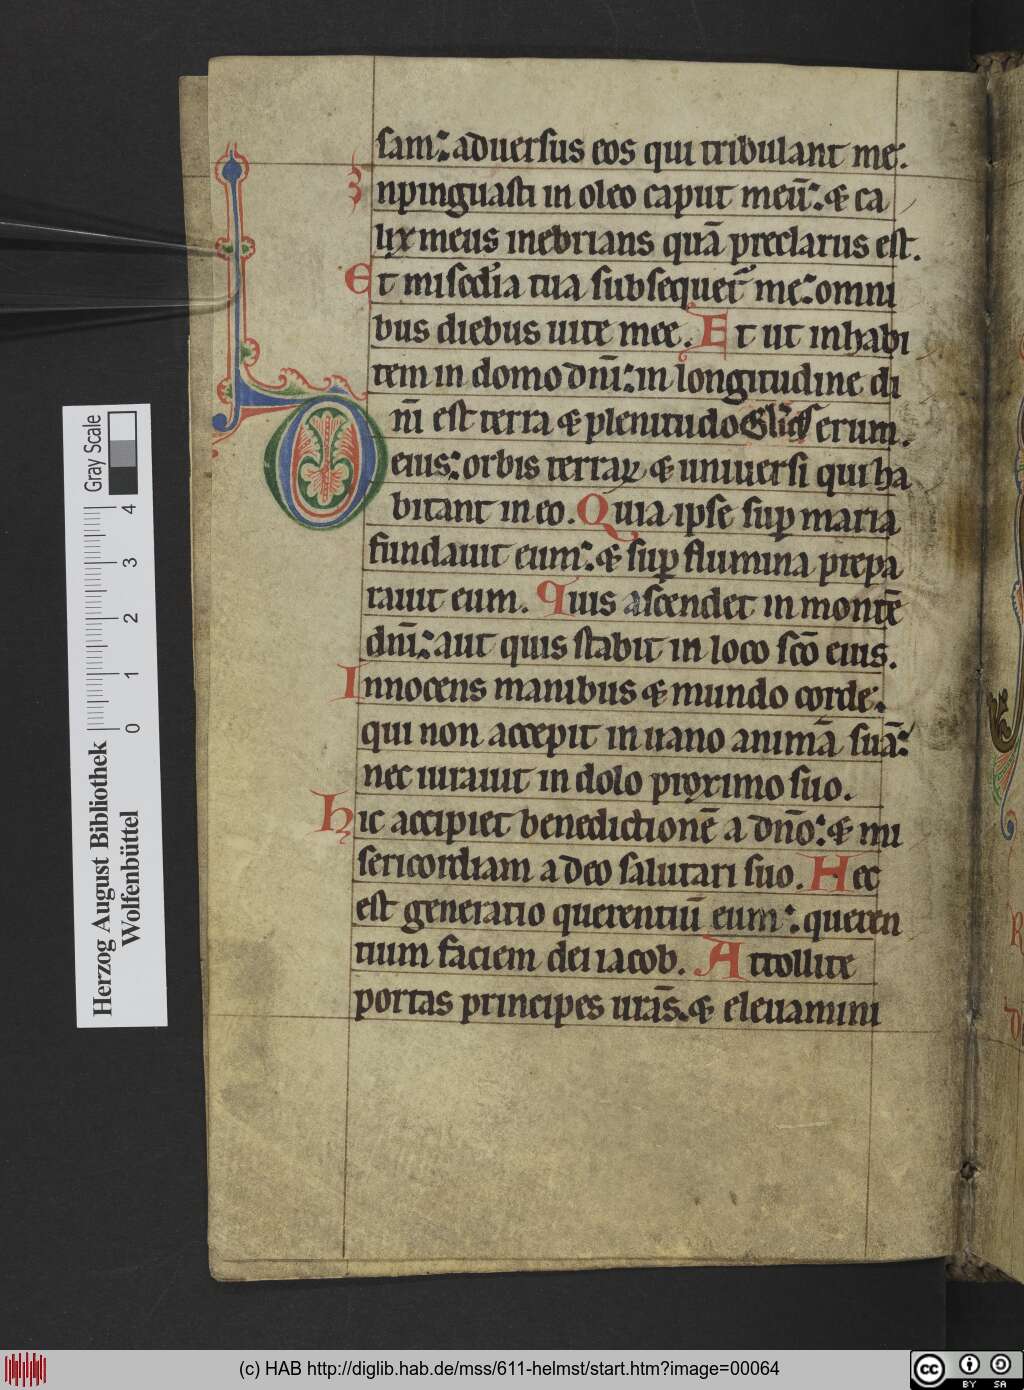 sam: aduersus eos qui tribulant me.
Inpinguasti in oleo caput meū: & ca
lix meus inebrians quā preclarus est.
Et miscd̄ia tua subsequet̄ me: omni
bus diebus uite mee. Et ut inhabi
tem in domo dn̄i: in longitudine di
Dn̄i est terra & plenitudo erum.
eius: orbis terraꝝ & uniuersi qui ha
bitant in eo. Quia ipse suꝑ maria
fundauit eum: & suꝑ flumina prepa
rauit eum. Quis ascendet in montē
dn̄i: aut quis stabit in loco sc̄o eius.
Innocens manibus & mundo corde:
qui non accepit in uano animā suā:
nec iurauit in dolo proximo suo.
Hic accipiet benedictionē a dn̄o: & mi
sericordiam a deo salutari suo. Hec
est generatio querentiū eum: queren
tium faciem dei iacob. Attollite
portas principes ur̄as: & eleuamini
Herzog August Bibliothek
Wolfenbüttel
0 1 2 3 4
Gray Scale
(c) HAB http://diglib.hab.de/mss/611-helmst/start.htm?image=00064
cc BY SA